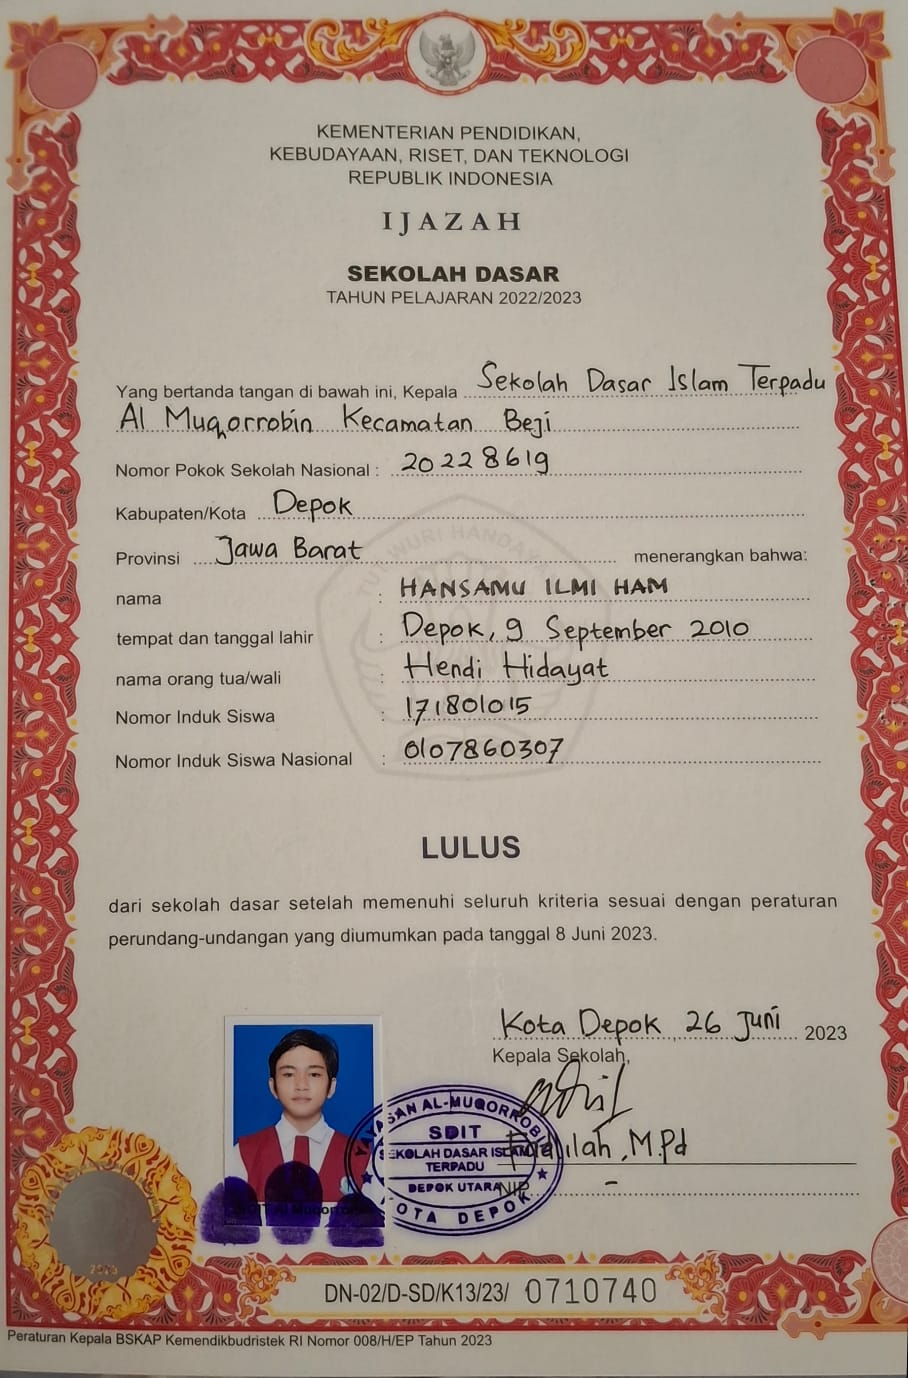 KEMENTERIAN PENDIDIKAN,
KEBUDAYAAN, RISET, DAN TEKNOLOGI
REPUBLIK INDONESIA
IJAZAH
SEKOLAH DASAR
TAHUN PELAJARAN 2022/2023
Yang bertanda tangan di bawah ini, Kepala Sekolah Dasar Islam Terpadu
Al Muqorrobin Kecamatan Beji
Nomor Pokok Sekolah Nasional : 20228619
Kabupaten/Kota Depok
Provinsi Jawa Barat menerangkan bahwa:
nama : HANSAMU ILMI HAM
tempat dan tanggal lahir : Depok, 9 September 2010
nama orang tua/wali : Hendi Hidayat
Nomor Induk Siswa : 171801015
Nomor Induk Siswa Nasional : 0107860307
TUT WURI HANDAYANI
LULUS
dari sekolah dasar setelah memenuhi seluruh kriteria sesuai dengan peraturan
perundang-undangan yang diumumkan pada tanggal 8 Juni 2023.
Kota Depok, 26 Juni 2023
Kepala Sekolah,
M.Pd
NIP -
YAYASAN AL-MUQORROBIN
SDIT
SEKOLAH DASAR ISLAM
TERPADU
DEPOK UTARA
KOTA DEPOK
SDIT Al Muqorrobin
2023
DN-02/D-SD/K13/23/ 0710740
Peraturan Kepala BSKAP Kemendikbudristek RI Nomor 008/H/EP Tahun 2023